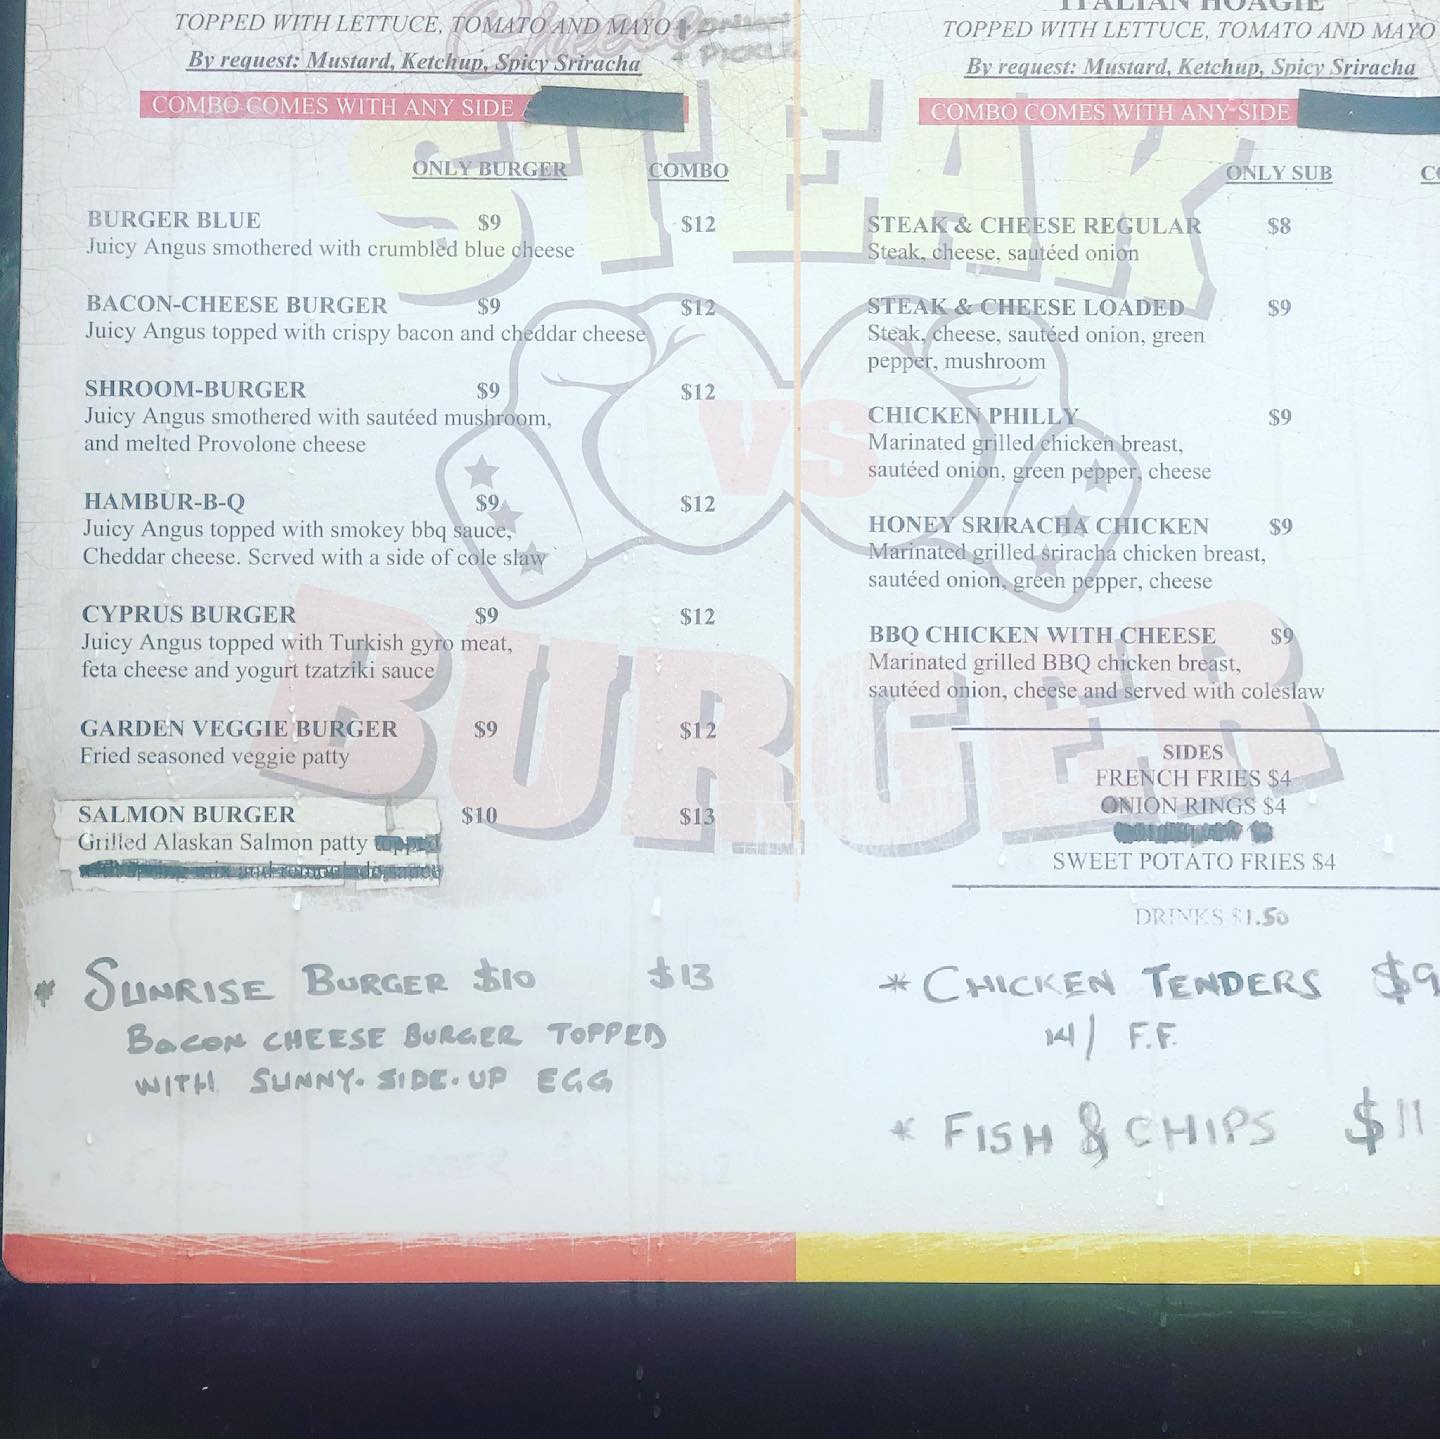 TOPPED WITH LETTUCE, TOMATO AND MAYO + ONION
+ PICKLE
By request: Mustard, Ketchup, Spicy Sriracha
COMBO COMES WITH ANY SIDE
ONLY BURGER COMBO
BURGER BLUE $9 $12
Juicy Angus smothered with crumbled blue cheese
BACON-CHEESE BURGER $9 $12
Juicy Angus topped with crispy bacon and cheddar cheese
SHROOM-BURGER $9 $12
Juicy Angus smothered with sautéed mushroom,
and melted Provolone cheese
HAMBUR-B-Q $9 $12
Juicy Angus topped with smokey bbq sauce,
Cheddar cheese. Served with a side of cole slaw
CYPRUS BURGER $9 $12
Juicy Angus topped with Turkish gyro meat,
feta cheese and yogurt tzatziki sauce
GARDEN VEGGIE BURGER $9 $12
Fried seasoned veggie patty
SALMON BURGER $10 $13
Grilled Alaskan Salmon patty topped
with spring mix and remoulade sauce
* SUNRISE BURGER $10 $13
BACON CHEESE BURGER TOPPED
WITH SUNNY-SIDE-UP EGG
ITALIAN HOAGIE
TOPPED WITH LETTUCE, TOMATO AND MAYO
By request: Mustard, Ketchup, Spicy Sriracha
COMBO COMES WITH ANY SIDE
ONLY SUB
STEAK & CHEESE REGULAR $8
Steak, cheese, sautéed onion
STEAK & CHEESE LOADED $9
Steak, cheese, sautéed onion, green
pepper, mushroom
CHICKEN PHILLY $9
Marinated grilled chicken breast,
sautéed onion, green pepper, cheese
HONEY SRIRACHA CHICKEN $9
Marinated grilled sriracha chicken breast,
sautéed onion, green pepper, cheese
BBQ CHICKEN WITH CHEESE $9
Marinated grilled BBQ chicken breast,
sautéed onion, cheese and served with coleslaw
SIDES
FRENCH FRIES $4
ONION RINGS $4
SWEET POTATO FRIES $4
DRINKS $1.50
* CHICKEN TENDERS $9
W/ F.F.
* FISH & CHIPS $11
Cheese
STEAK
VS
BURGER